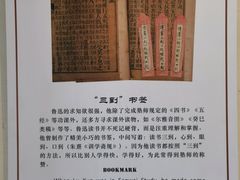 “三到”书签
鲁迅的求知欲很强，他除了完成塾师规定的《四书》《五
经》等功课外，还多方寻求课外读物，如《尔雅音图》《癸巳
类稿》等等。鲁迅读书并不死记硬背，而是注重理解和掌握。
他曾制作了精美小巧的书签，中间写着：读书三到，心到、眼
到、口到（朱熹《训学斋规》）。因为他读书都按照“三到”
的方法，所以比别人学得快，学得好，为此常得到塾师的称
赞。
BOOKMARK